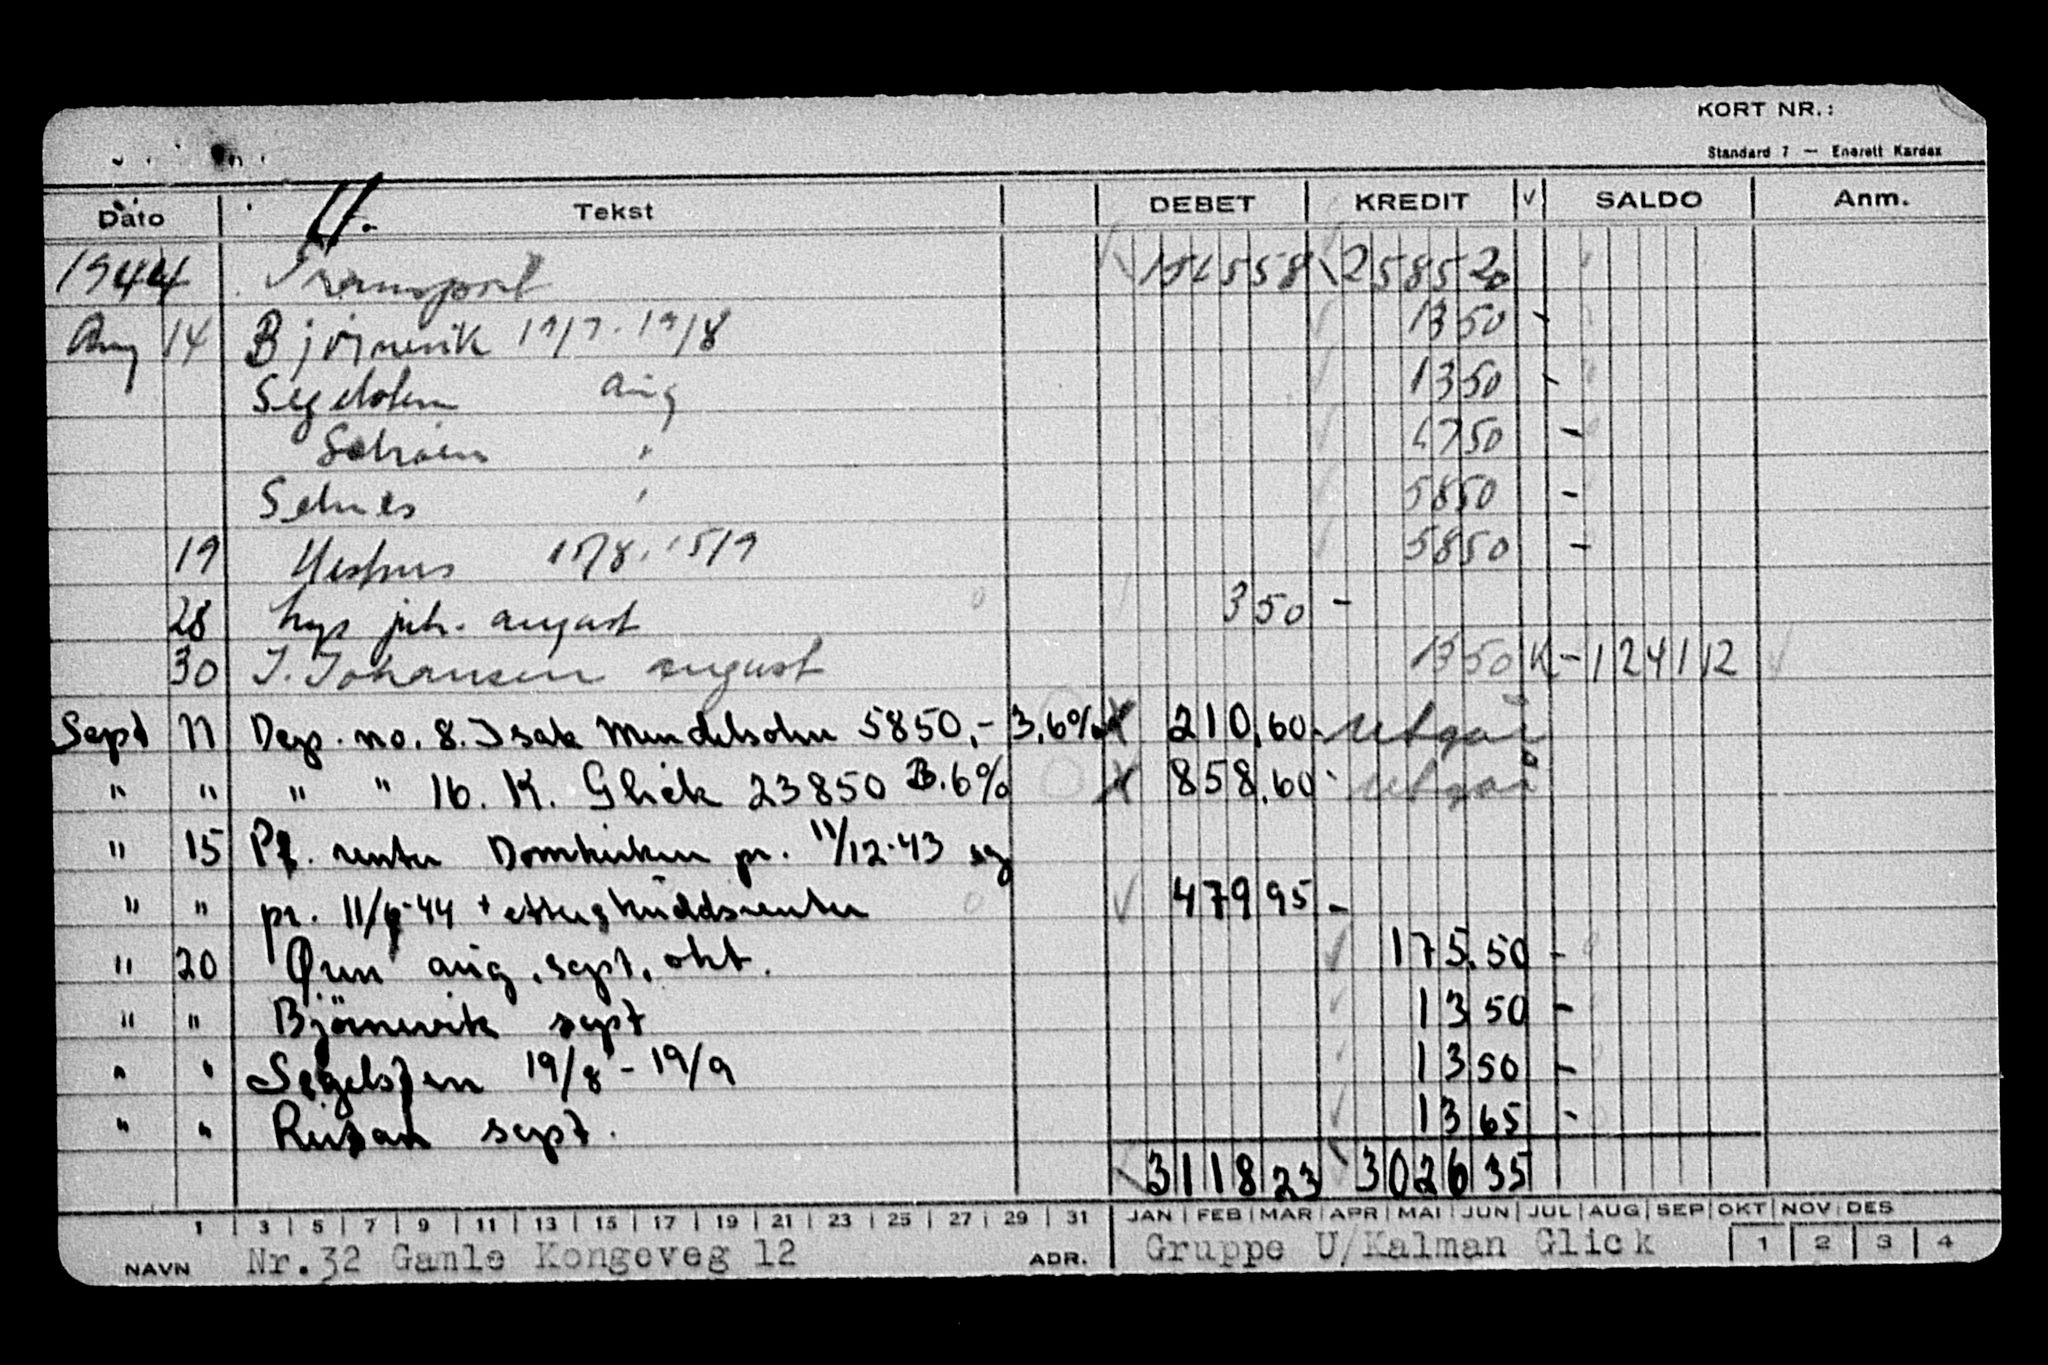 KORT NR.:
Standard 7 — Enerett Kardex
U.
Dato Tekst DEBET KREDIT V SALDO Anm.
1944 Transport 156558 258520
Aug 14 Bjørnevik 19/7-19/8 1350 -
aug 1350 -
" 4750 -
Selnes " 5850 -
19 15/8-15/9 5850 -
28 lys juli-august 350 -
30 J. Johansen august 1350 K - 124112
Sept 11 Dep. no. 8. Isak Mendelsohn 5850,- 3,6% 210,60 Utgår
" " " " 16. K. Glick 23850 3.6% 858,60 Utgår
" 15 Pt. renter Domkirken pr. 11/12-43 og
" " pr. 11/6-44 + etterskuddsrenter 479 95 -
" 20 Ørun aug, sept, okt. 175,50 -
" " Bjørnevik sept 1350 -
" " 19/8 - 19/9 1350 -
" " sept. 1365 -
3118 23 3026 35
1 3 5 7 9 11 13 15 17 19 21 23 25 27 29 31 JAN FEB MAR APR MAI JUN JUL AUG SEP OKT NOV DES
NAVN Nr.32 Gamle Kongeveg 12 ADR. Gruppe U/Kalman Glick 1 2 3 4